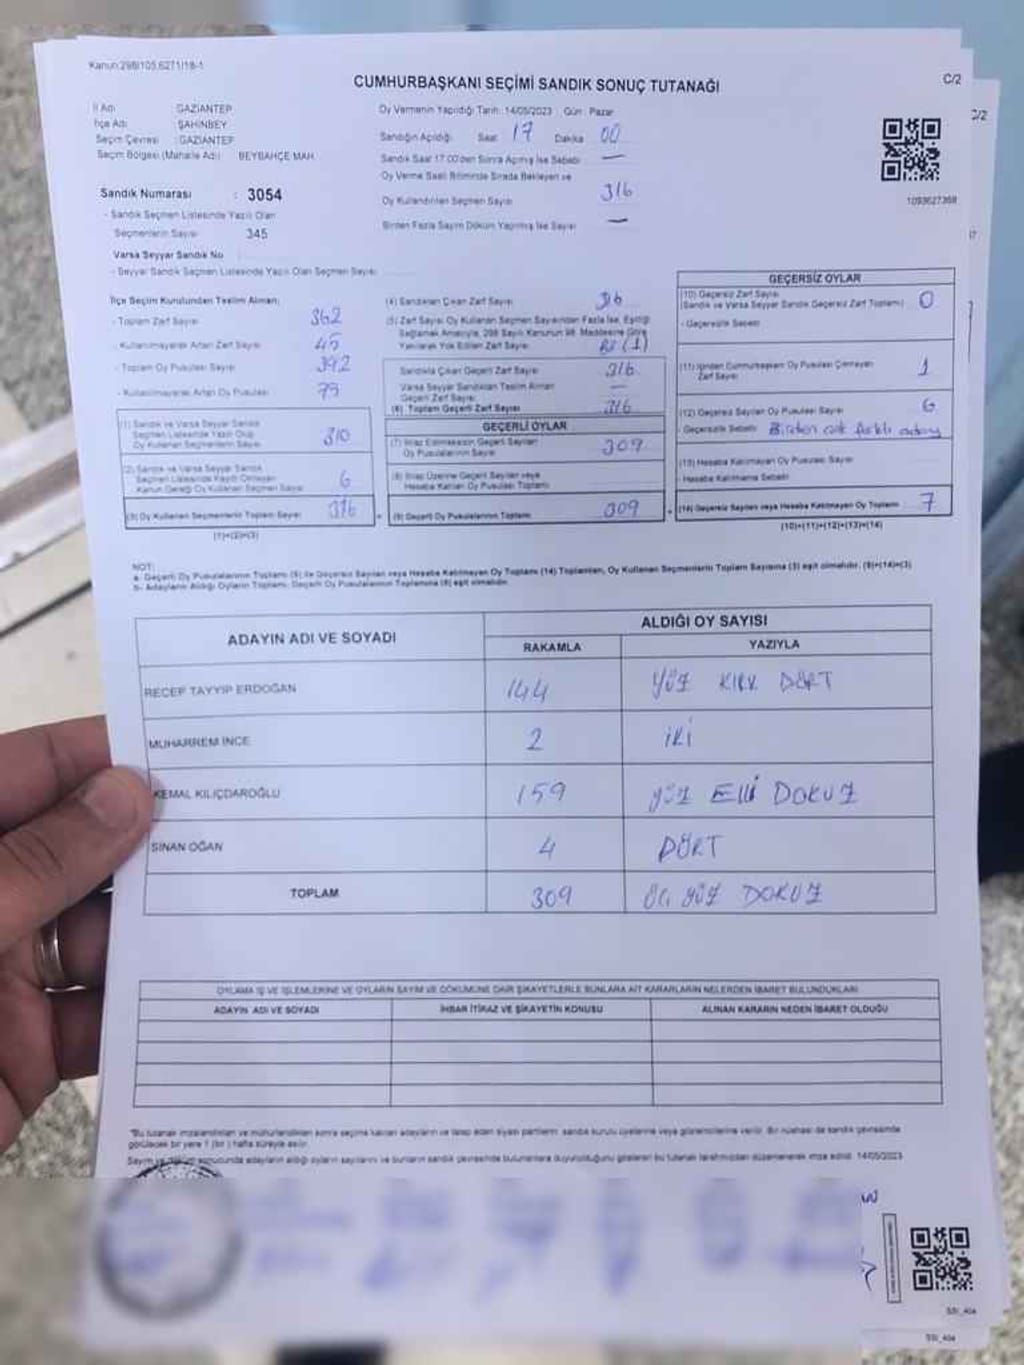 Kanun:298/105,6271/18-1
CUMHURBAŞKANI SEÇİMİ SANDIK SONUÇ TUTANAĞI
C/2
C/2
İl Adı : GAZİANTEP
İlçe Adı : ŞAHİNBEY
Seçim Çevresi : GAZİANTEP
Seçim Bölgesi (Mahalle Adı) : BEYBAHÇE MAH.
Oy Vermenin Yapıldığı Tarih: 14/05/2023 Gün: Pazar
Sandığın Açıldığı Saat 17 Dakika 00
Sandık Saat 17:00'den Sonra Açılmış İse Sebebi : —
Oy Verme Saati Bitiminde Sırada Bekleyen ve
Oy Kullandırılan Seçmen Sayısı 316
Birden Fazla Sayım Döküm Yapılmış İse Sayısı —
1093627368
Sandık Numarası : 3054
- Sandık Seçmen Listesinde Yazılı Olan
Seçmenlerin Sayısı 345
Varsa Seyyar Sandık No
- Seyyar Sandık Seçmen Listesinde Yazılı Olan Seçmen Sayısı
İlçe Seçim Kurulundan Teslim Alınan:
- Toplam Zarf Sayısı 362
- Kullanılmayarak Artan Zarf Sayısı 45
- Toplam Oy Pusulası Sayısı 392
- Kullanılmayarak Artan Oy Pusulası 75
(1) Sandık ve Varsa Seyyar Sandık
Seçmen Listesinde Yazılı Olup
Oy Kullanan Seçmenlerin Sayısı 310
(2) Sandık ve Varsa Seyyar Sandık
Seçmen Listesinde Kayıtlı Olmayan
Kanun Gereği Oy Kullanan Seçmen Sayısı 6
(3) Oy Kullanan Seçmenlerin Toplam Sayısı 316
(1)+(2)=(3)
(4) Sandıktan Çıkan Zarf Sayısı
(5) Zarf Sayısı Oy Kullanan Seçmen Sayısından Fazla İse, Eşitliği
Sağlamak Amacıyla, 298 Sayılı Kanunun 98. Maddesine Göre
Yakılarak Yok Edilen Zarf Sayısı (1)
Sandıkta Çıkan Geçerli Zarf Sayısı 316
Varsa Seyyar Sandıktan Teslim Alınan
Geçerli Zarf Sayısı —
(6) Toplam Geçerli Zarf Sayısı 316
GEÇERLİ OYLAR
(7) İtiraz Edilmeksizin Geçerli Sayılan
Oy Pusulalarının Sayısı 309
(8) İtiraz Üzerine Geçerli Sayılan veya
Hesaba Katılan Oy Pusulası Toplamı
(9) Geçerli Oy Pusulalarının Toplamı 309
GEÇERSİZ OYLAR
(10) Geçersiz Zarf Sayısı
(Sandık ve Varsa Seyyar Sandık Geçersiz Zarf Toplamı) 0
- Geçersizlik Sebebi
(11) İçinden Cumhurbaşkanı Oy Pusulası Çıkmayan
Zarf Sayısı 1
(12) Geçersiz Sayılan Oy Pusulası Sayısı 6
- Geçersizlik Sebebi Birden çok farklı aday
(13) Hesaba Katılmayan Oy Pusulası Sayısı
- Hesaba Katılmama Sebebi
(14) Geçersiz Sayılan veya Hesaba Katılmayan Oy Toplamı 7
(10)+(11)+(12)+(13)=(14)
NOT:
a- Geçerli Oy Pusulalarının Toplamı (9) ile Geçersiz Sayılan veya Hesaba Katılmayan Oy Toplamı (14) Toplamları, Oy Kullanan Seçmenlerin Toplam Sayısına (3) eşit olmalıdır. (9)+(14)=(3)
b- Adayların Aldığı Oyların Toplamı, Geçerli Oy Pusulalarının Toplamına (9) eşit olmalıdır.
ADAYIN ADI VE SOYADI
ALDIĞI OY SAYISI
RAKAMLA YAZIYLA
RECEP TAYYİP ERDOĞAN 144 YÜZ KIRK DÖRT
MUHARREM İNCE 2 İKİ
KEMAL KILIÇDAROĞLU 159 YÜZ ELLİ DOKUZ
SİNAN OĞAN 4 DÖRT
TOPLAM 309 ÜÇ YÜZ DOKUZ
OYLAMA İŞ VE İŞLEMLERİNE VE OYLARIN SAYIM VE DÖKÜMÜNE DAİR ŞİKAYETLERLE BUNLARA AİT KARARLARIN NELERDEN İBARET BULUNDUKLARI
ADAYIN ADI VE SOYADI İHBAR İTİRAZ VE ŞİKAYETİN KONUSU ALINAN KARARIN NEDEN İBARET OLDUĞU
"Bu tutanak imzalandıktan ve mühürlendikten sonra seçime katılan adayların ve talep eden siyasi partilerin sandık kurulu üyelerine veya gözlemcilerine verilir. Bir nüshası da sandık çevresinde
görülecek bir yere 1 (bir) hafta süreyle asılır.
sonucunda adayların aldığı oyların sayılarını ve bunların sandık çevresinde bulunanlara duyurulduğunu gösteren bu tutanak tarafımızdan düzenlenerek imza edildi. 14/05/2023